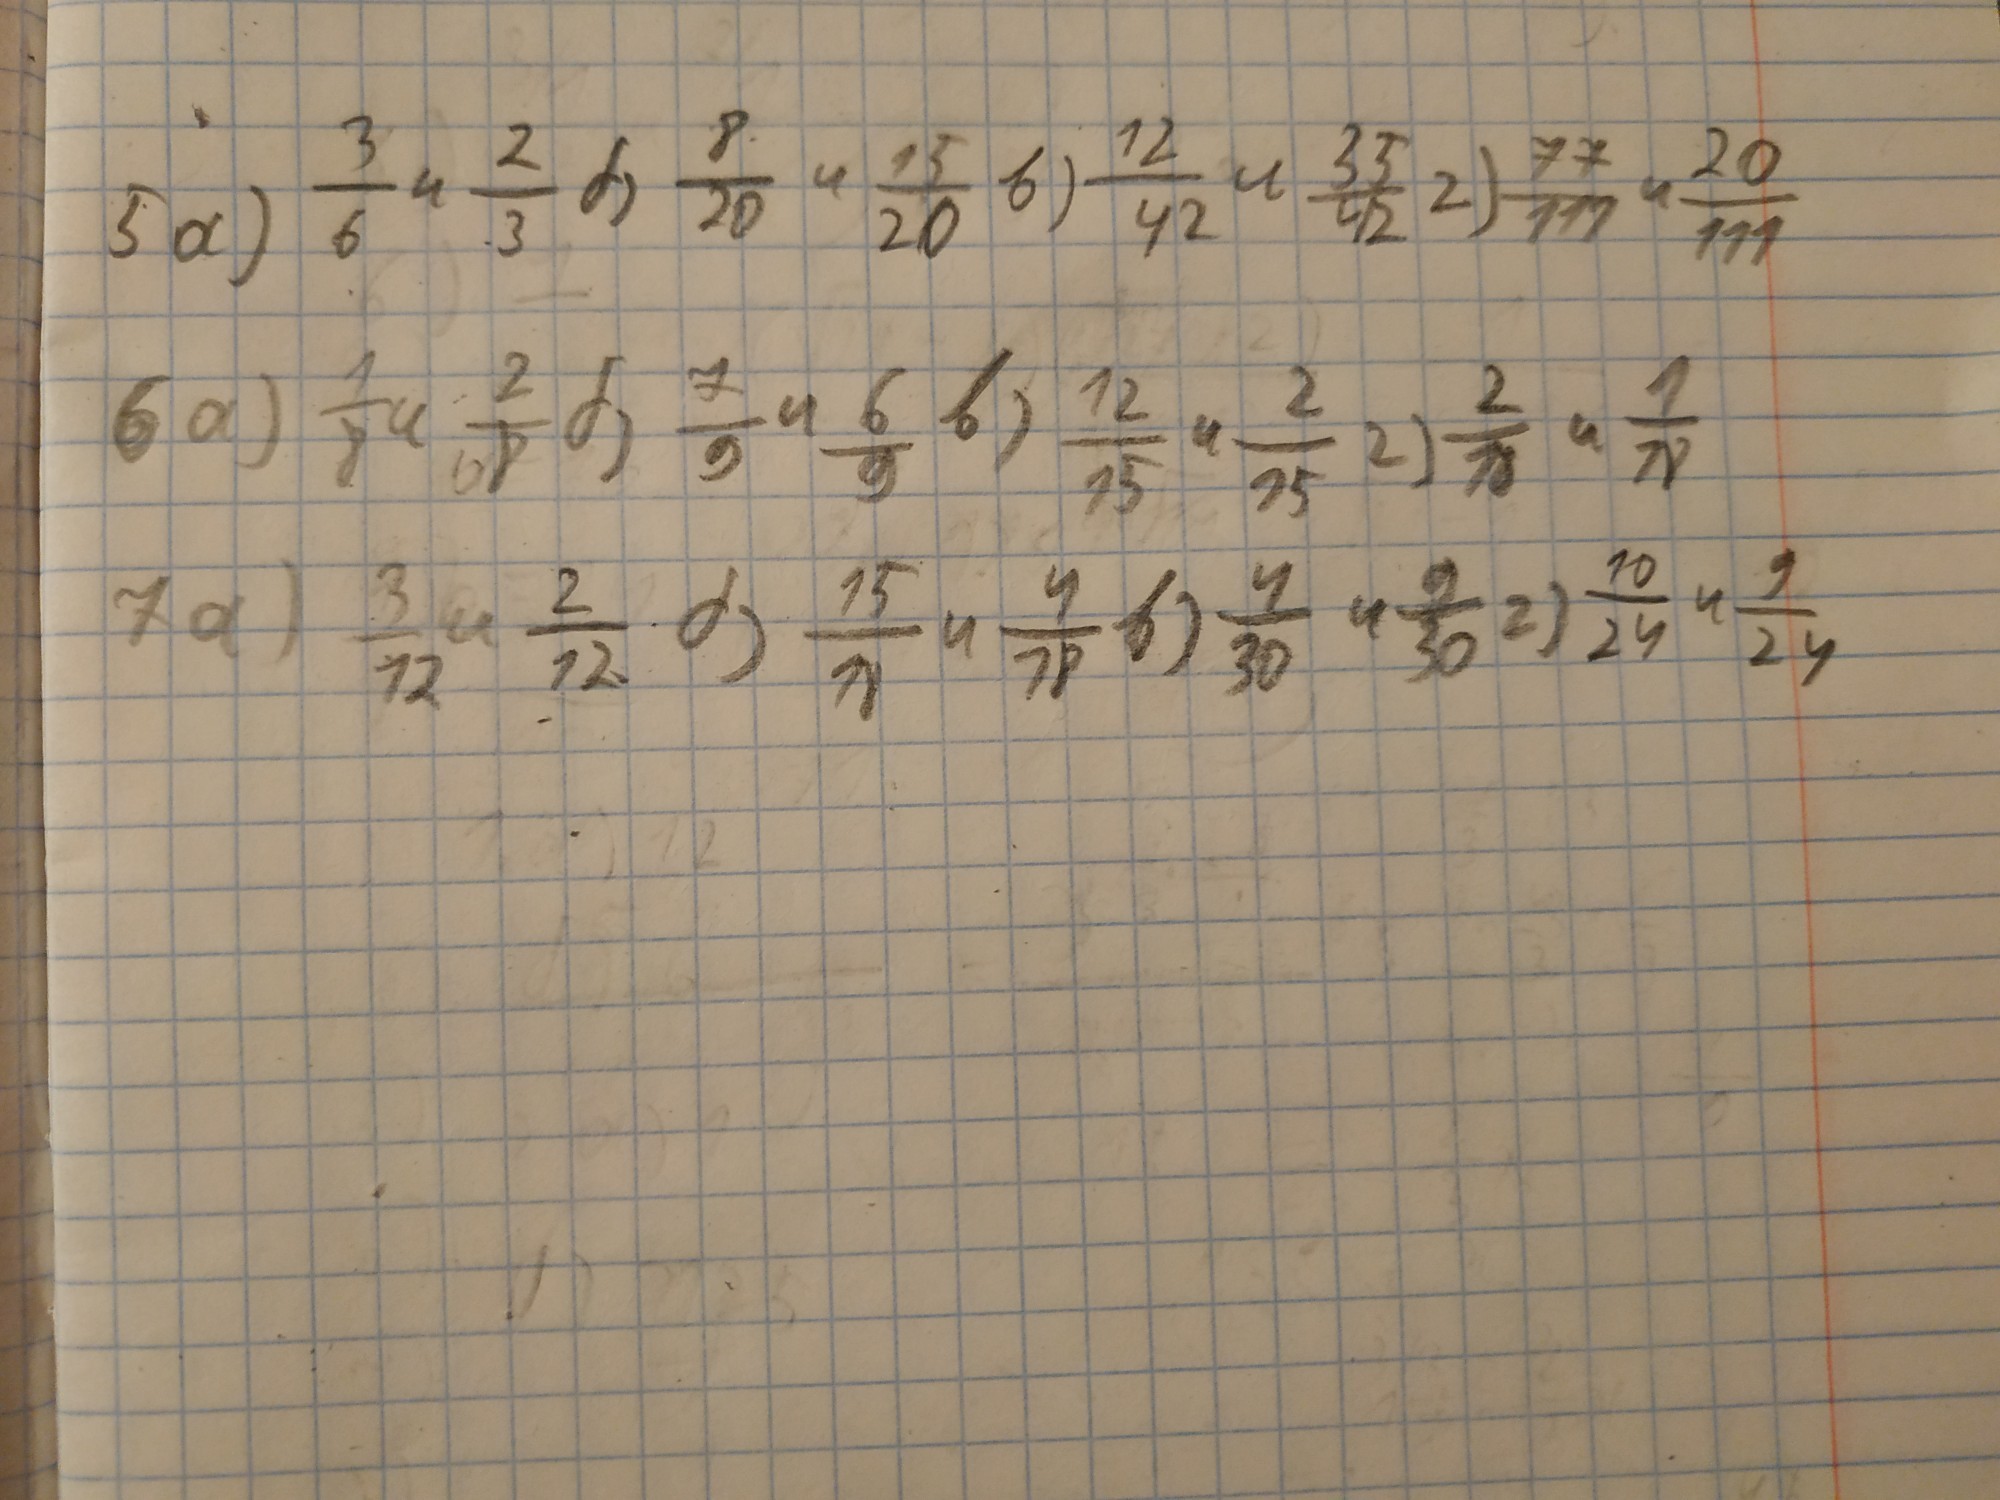 5 а) 3/6 и 2/3 б) 8/20 и 15/20 в) 12/42 и 35/42 г) 77/111 и 20/111
6 а) 1/8 и 2/8 б) 7/9 и 6/9 в) 12/15 и 2/15 г) 2/18 и 1/18
7 а) 3/12 и 2/12 б) 15/18 и 4/18 в) 4/30 и 9/30 г) 10/24 и 9/24